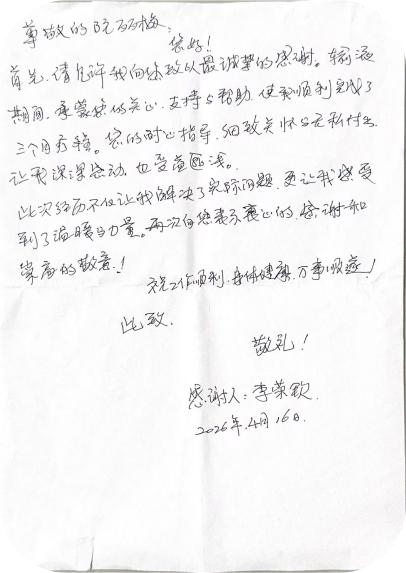 尊敬的阮丽梅：
您好！
首先，请允许我向您致以最诚挚的感谢。输液
期间，承蒙您的关心、支持与帮助，使我顺利完成了
三个月疗程。您的耐心指导、细致关怀与无私付出，
让我深深感动，也受益匪浅。
此次经历不仅让我解决了实际问题，更让我感受
到了温暖与力量。再次向您表示衷心的感谢和
崇高的敬意！
祝工作顺利，身体健康，万事顺意！
此致，
敬礼！
感谢人：李荣钦
2026年.4月16日.